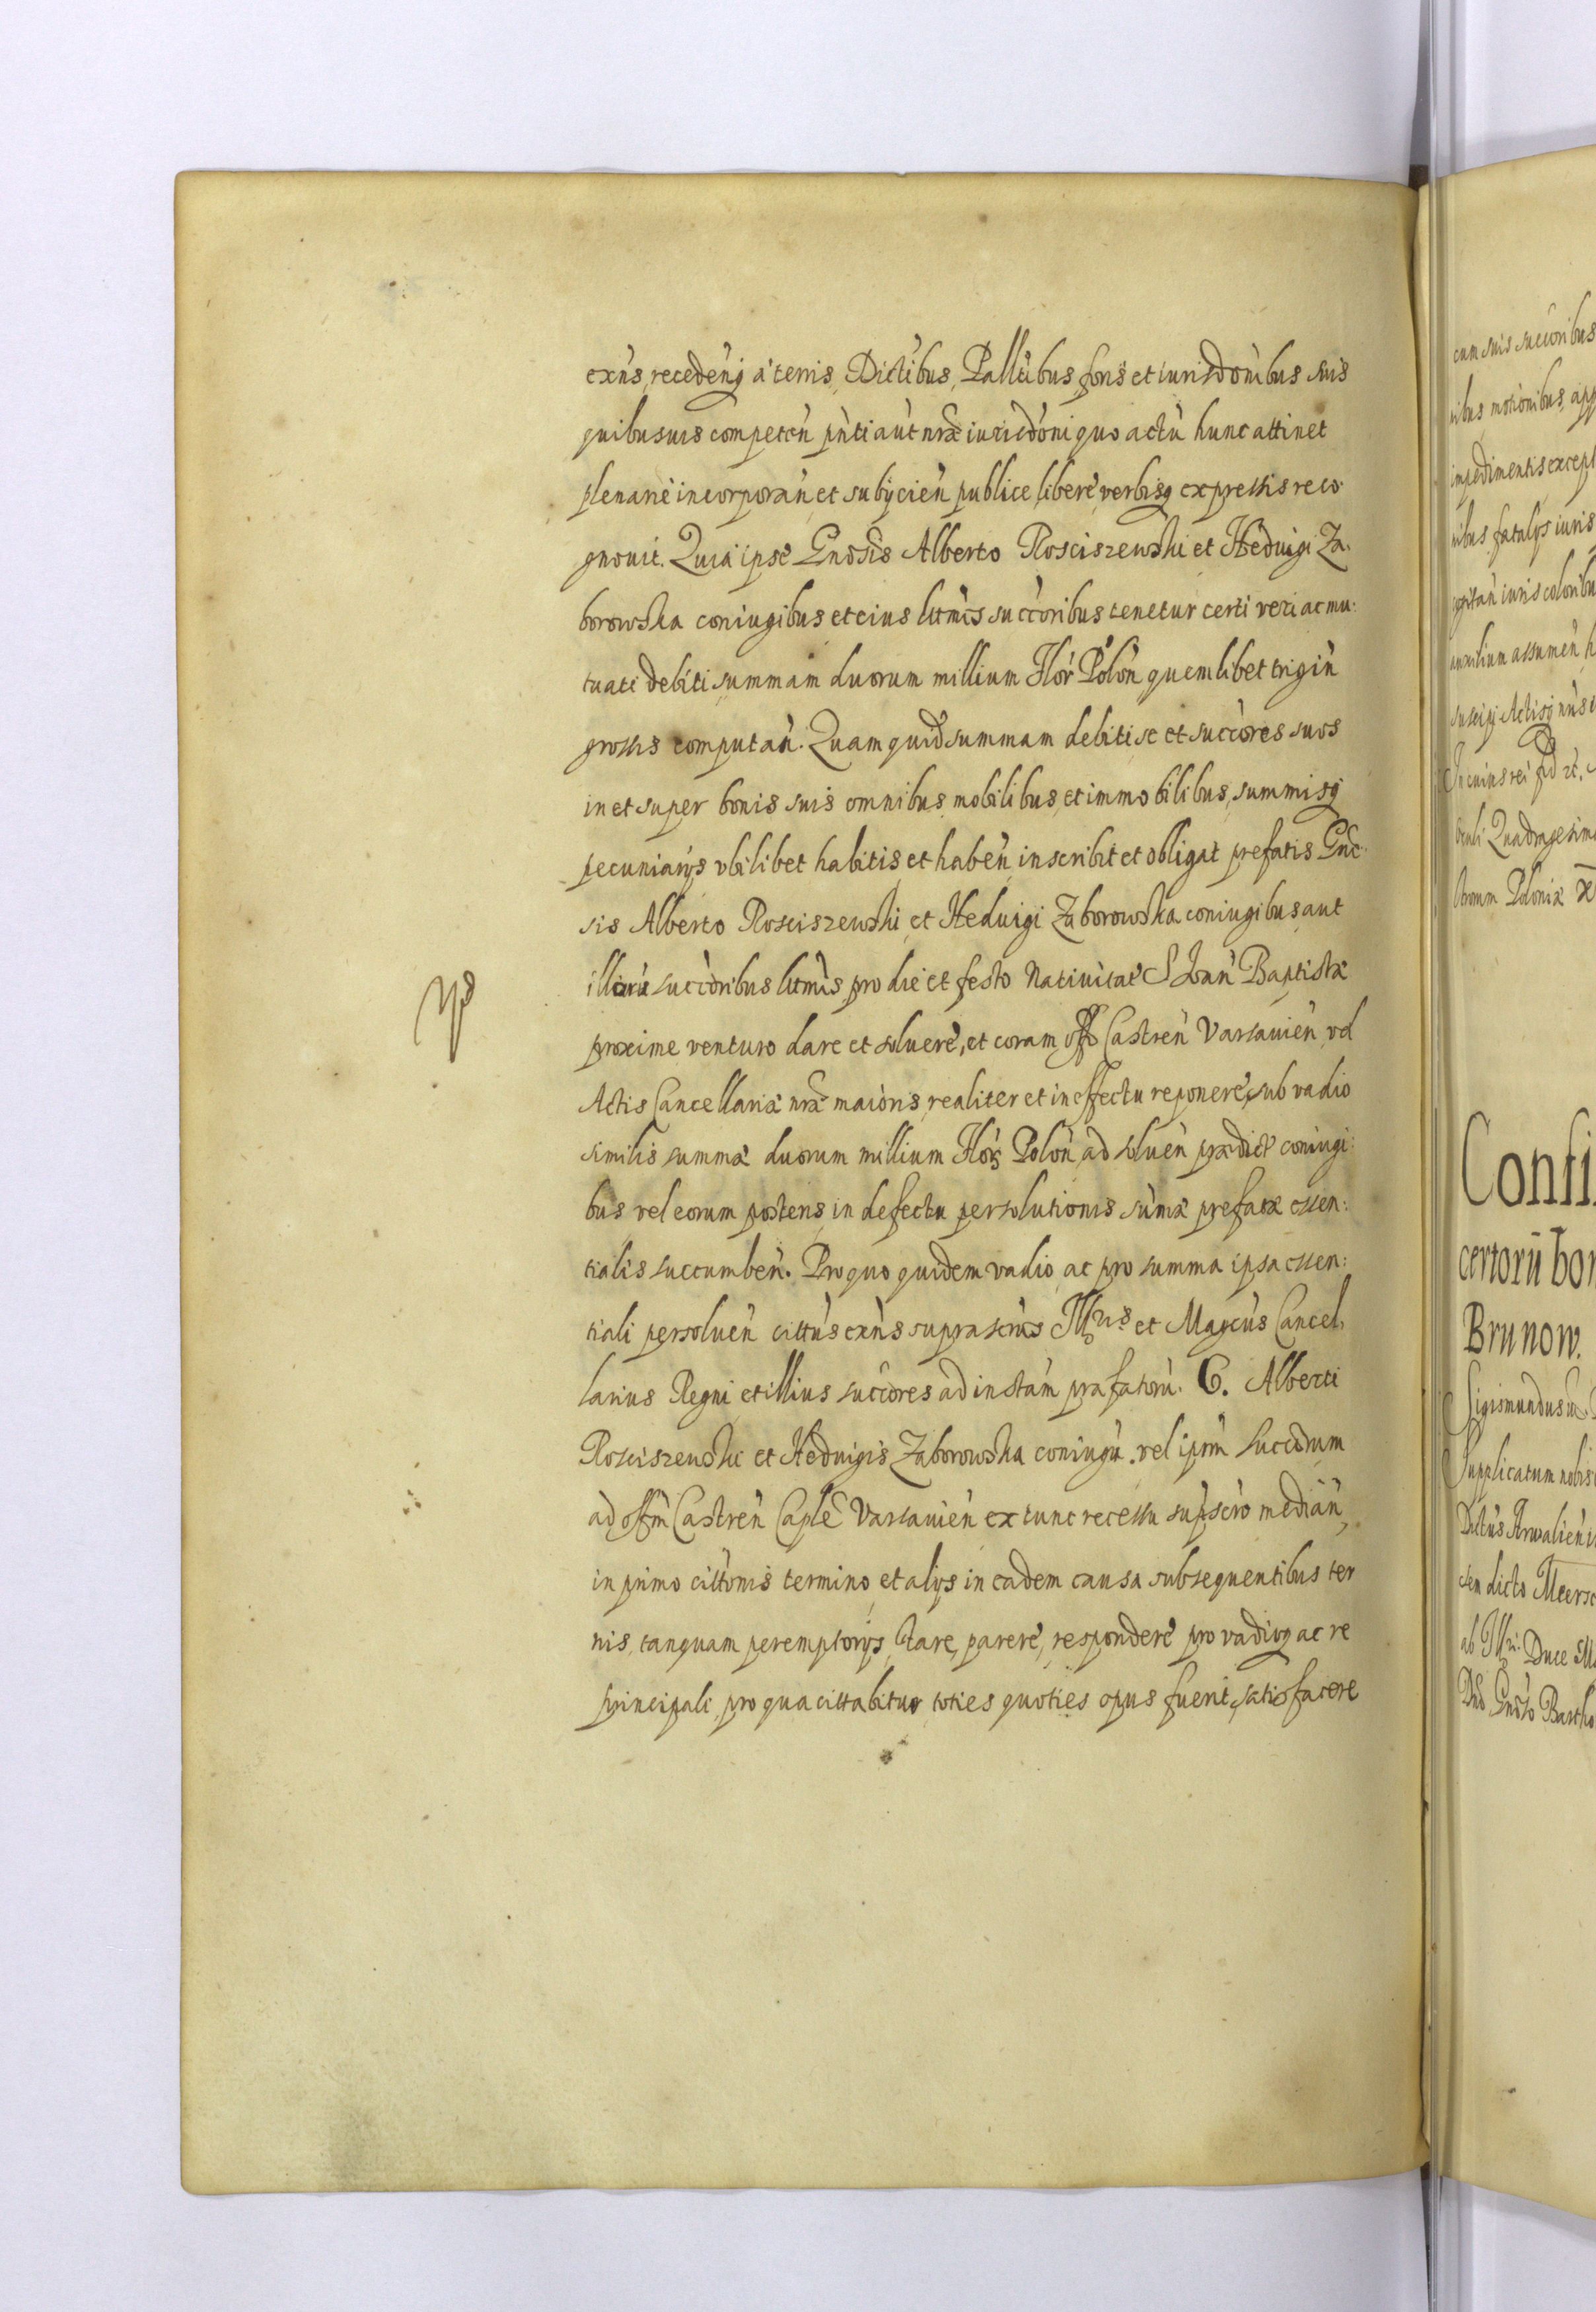 exńs, recedenq a terris, Dictibus, Palltibus, foris et iurisdonibus suis
quibusuis competeń pńti aut nrae iurisdoni quo actu hunc attinet
plenarie incorporań et subijcień publice libere verbisq expressis reco:
gnouit. Quia ipse Gnosis Alberto Rosciszewski et Heduigi Za:
borowska coniugibus et eius ltmis succoribus tenetur certi veri ac mu:
tuati debiti summam duorum millium Flor Polon quemlibet trigiń
grossis computań. Quam quid summam debiti se et succores suos
in et super bonis suis omnibus mobilibus et immobilibus, summisq
pecuniarijs vbilibet habitis et habeń inscribit et obligat prefatis Gnc:
sis Alberto Rosciszewski et Heduigi Zaborowska coniugibus aut
illorú succoribus ltmis pro die et festo Natiuitat S Joań Baptistae
proxime venturo dare et soluere, et coram offo Castreń Varsauień vel
Actis Cancellariae nrae maioris realiter et in effectu reponere, sub vadio
similis summae duorum millium Flor Poloń ad solueń praedict coniugi:
bus vel eorum posteris in defectu persolutionis sumae prefatae essen:
tialis succumbeń. Pro quo quidem vadio ac pro summa ipsa essen:
tiali persolueń cittus exńs suprascrus Illris et Magcus Cancel:
larius Regni et illius succores ad instam prafatorú. G. Alberti
Rosciszewski et Heduigis Zaborowska coniugú. vel iprm succorum
ad offm Castreń Caple Varsauień ex tunc recessu supscro mediań,
in primo cittonis termino et alijs in eadem causa subsequentibus ter
nis, tanquam peremptorijs, stare, parere, respondere pro vadioq ac re
principali, pro qua cittabitur toties quoties opus fuerit, satisfacere
cum suis succoribus
nibus motionibus, app
impedimentis except
nibus fatalijs iuris
iuris coloribu
auxilium assumeń h
suscipi Actisq nris
In cuius rei fid etc.
Quadragesimo
Poloniae
Confi
certorú bon
Brunow.
Sigismundus
Supplicatum nobis
sen dicto Meers
ab Illri. Duce
Dno Gnoso Bartho